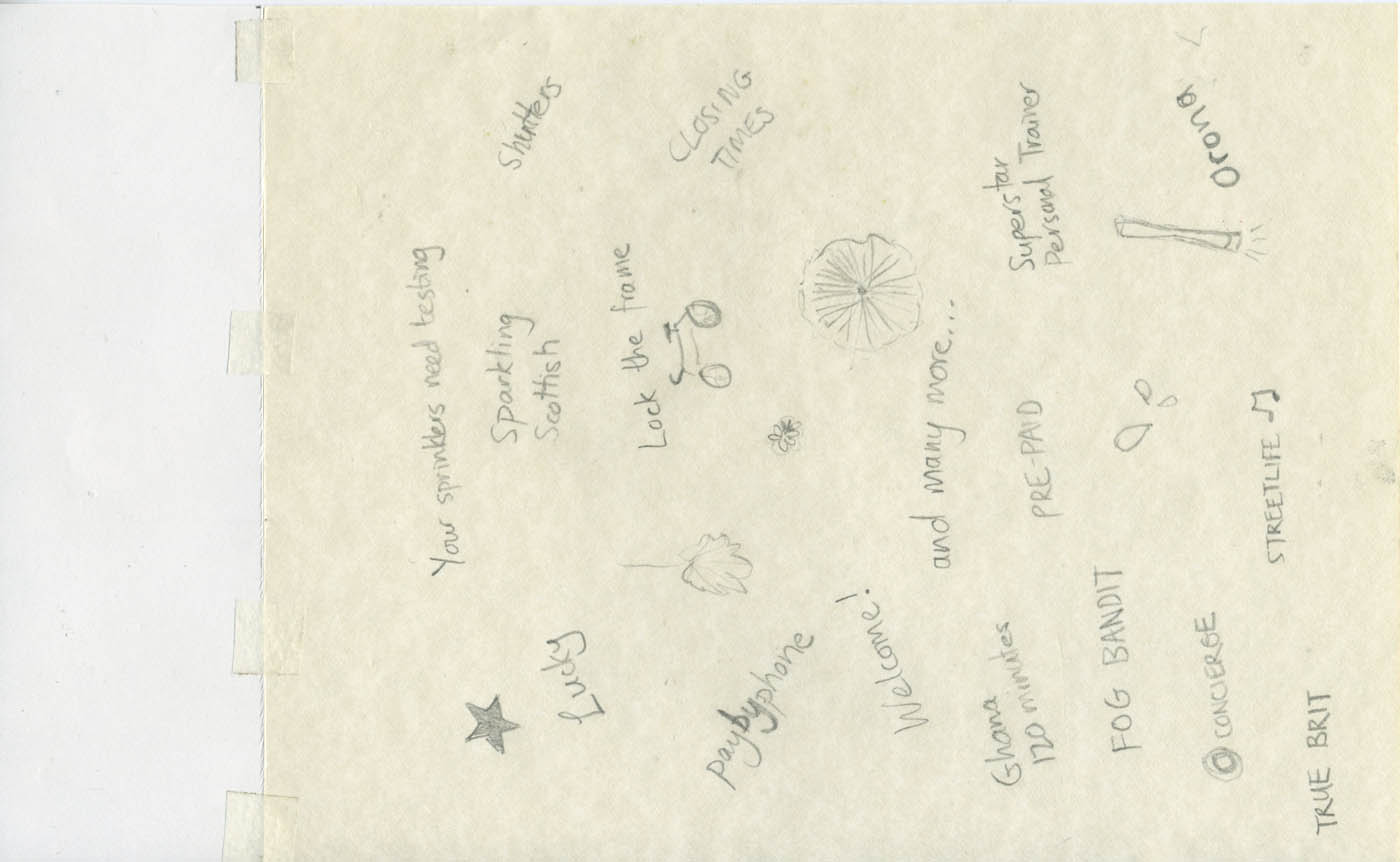 Your sprinklers need testing
Shutters
Sparkling
Scottish
Lucky
Lock the frame
CLOSING
TIMES
paybyphone
Welcome!
and many more...
Superstar
Personal Trainer
Ghana
120 minutes
PRE-PAID
FOG BANDIT
Orona
CONCIERGE
STREETLIFE
TRUE BRIT